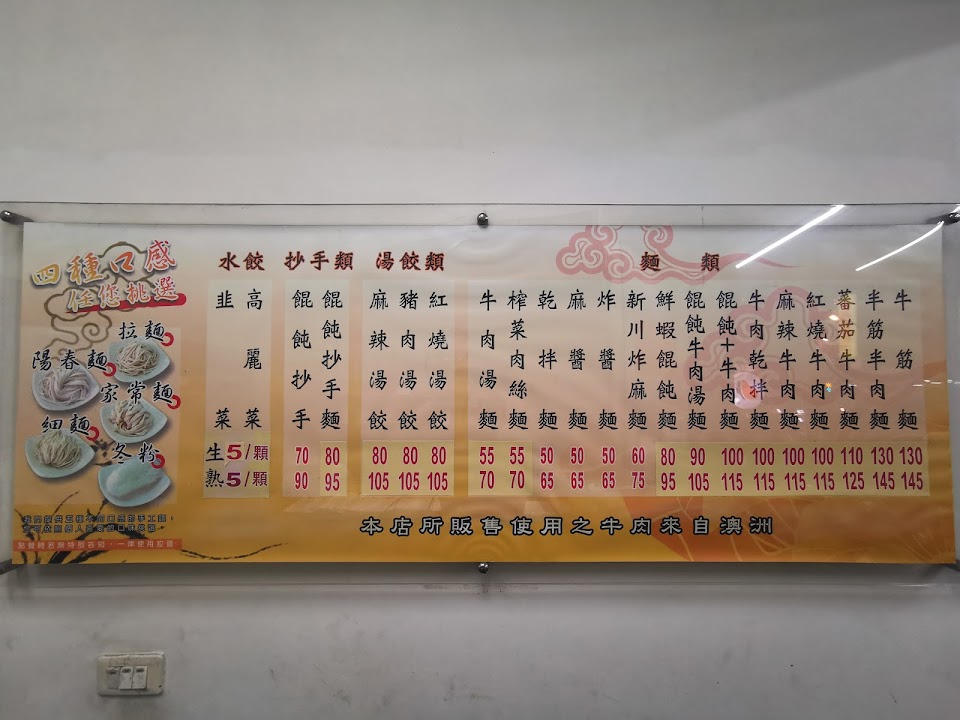 四種口感
任您挑選
拉麵
陽春麵
家常麵
細麵
冬粉
水餃
韭菜
高麗菜
生5/顆
熟5/顆
抄手類
餛飩抄手 70 90
餛飩抄手麵 80 95
湯餃類
麻辣湯餃 80 105
豬肉湯餃 80 105
紅燒湯餃 80 105
麵類
牛肉湯麵 55 70
榨菜肉絲麵 55 70
乾拌麵 50 65
麻醬麵 50 65
炸醬麵 50 65
新川炸麻麵 60 75
鮮蝦餛飩麵 80 95
餛飩牛肉湯麵 90 105
餛飩十牛肉麵 100 115
牛肉乾拌麵 100 115
麻辣牛肉麵 100 115
紅燒牛肉麵 100 115
蕃茄牛肉麵 110 125
半筋半肉麵 130 145
牛筋麵 130 145
本店所販售使用之牛肉來自澳洲